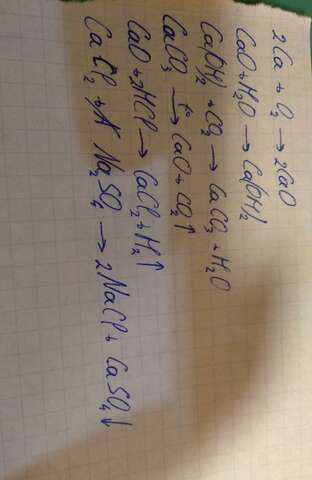 2Ca + O₂ → 2CaO
CaO + H₂O → Ca(OH)₂
Ca(OH)₂ + CO₂ → CaCO₃ + H₂O
CaCO₃ →(t°) CaO + CO₂↑
CaO + 2HCl → CaCl₂ + H₂↑
CaCl₂ + Na₂SO₄ → 2NaCl + CaSO₄↓